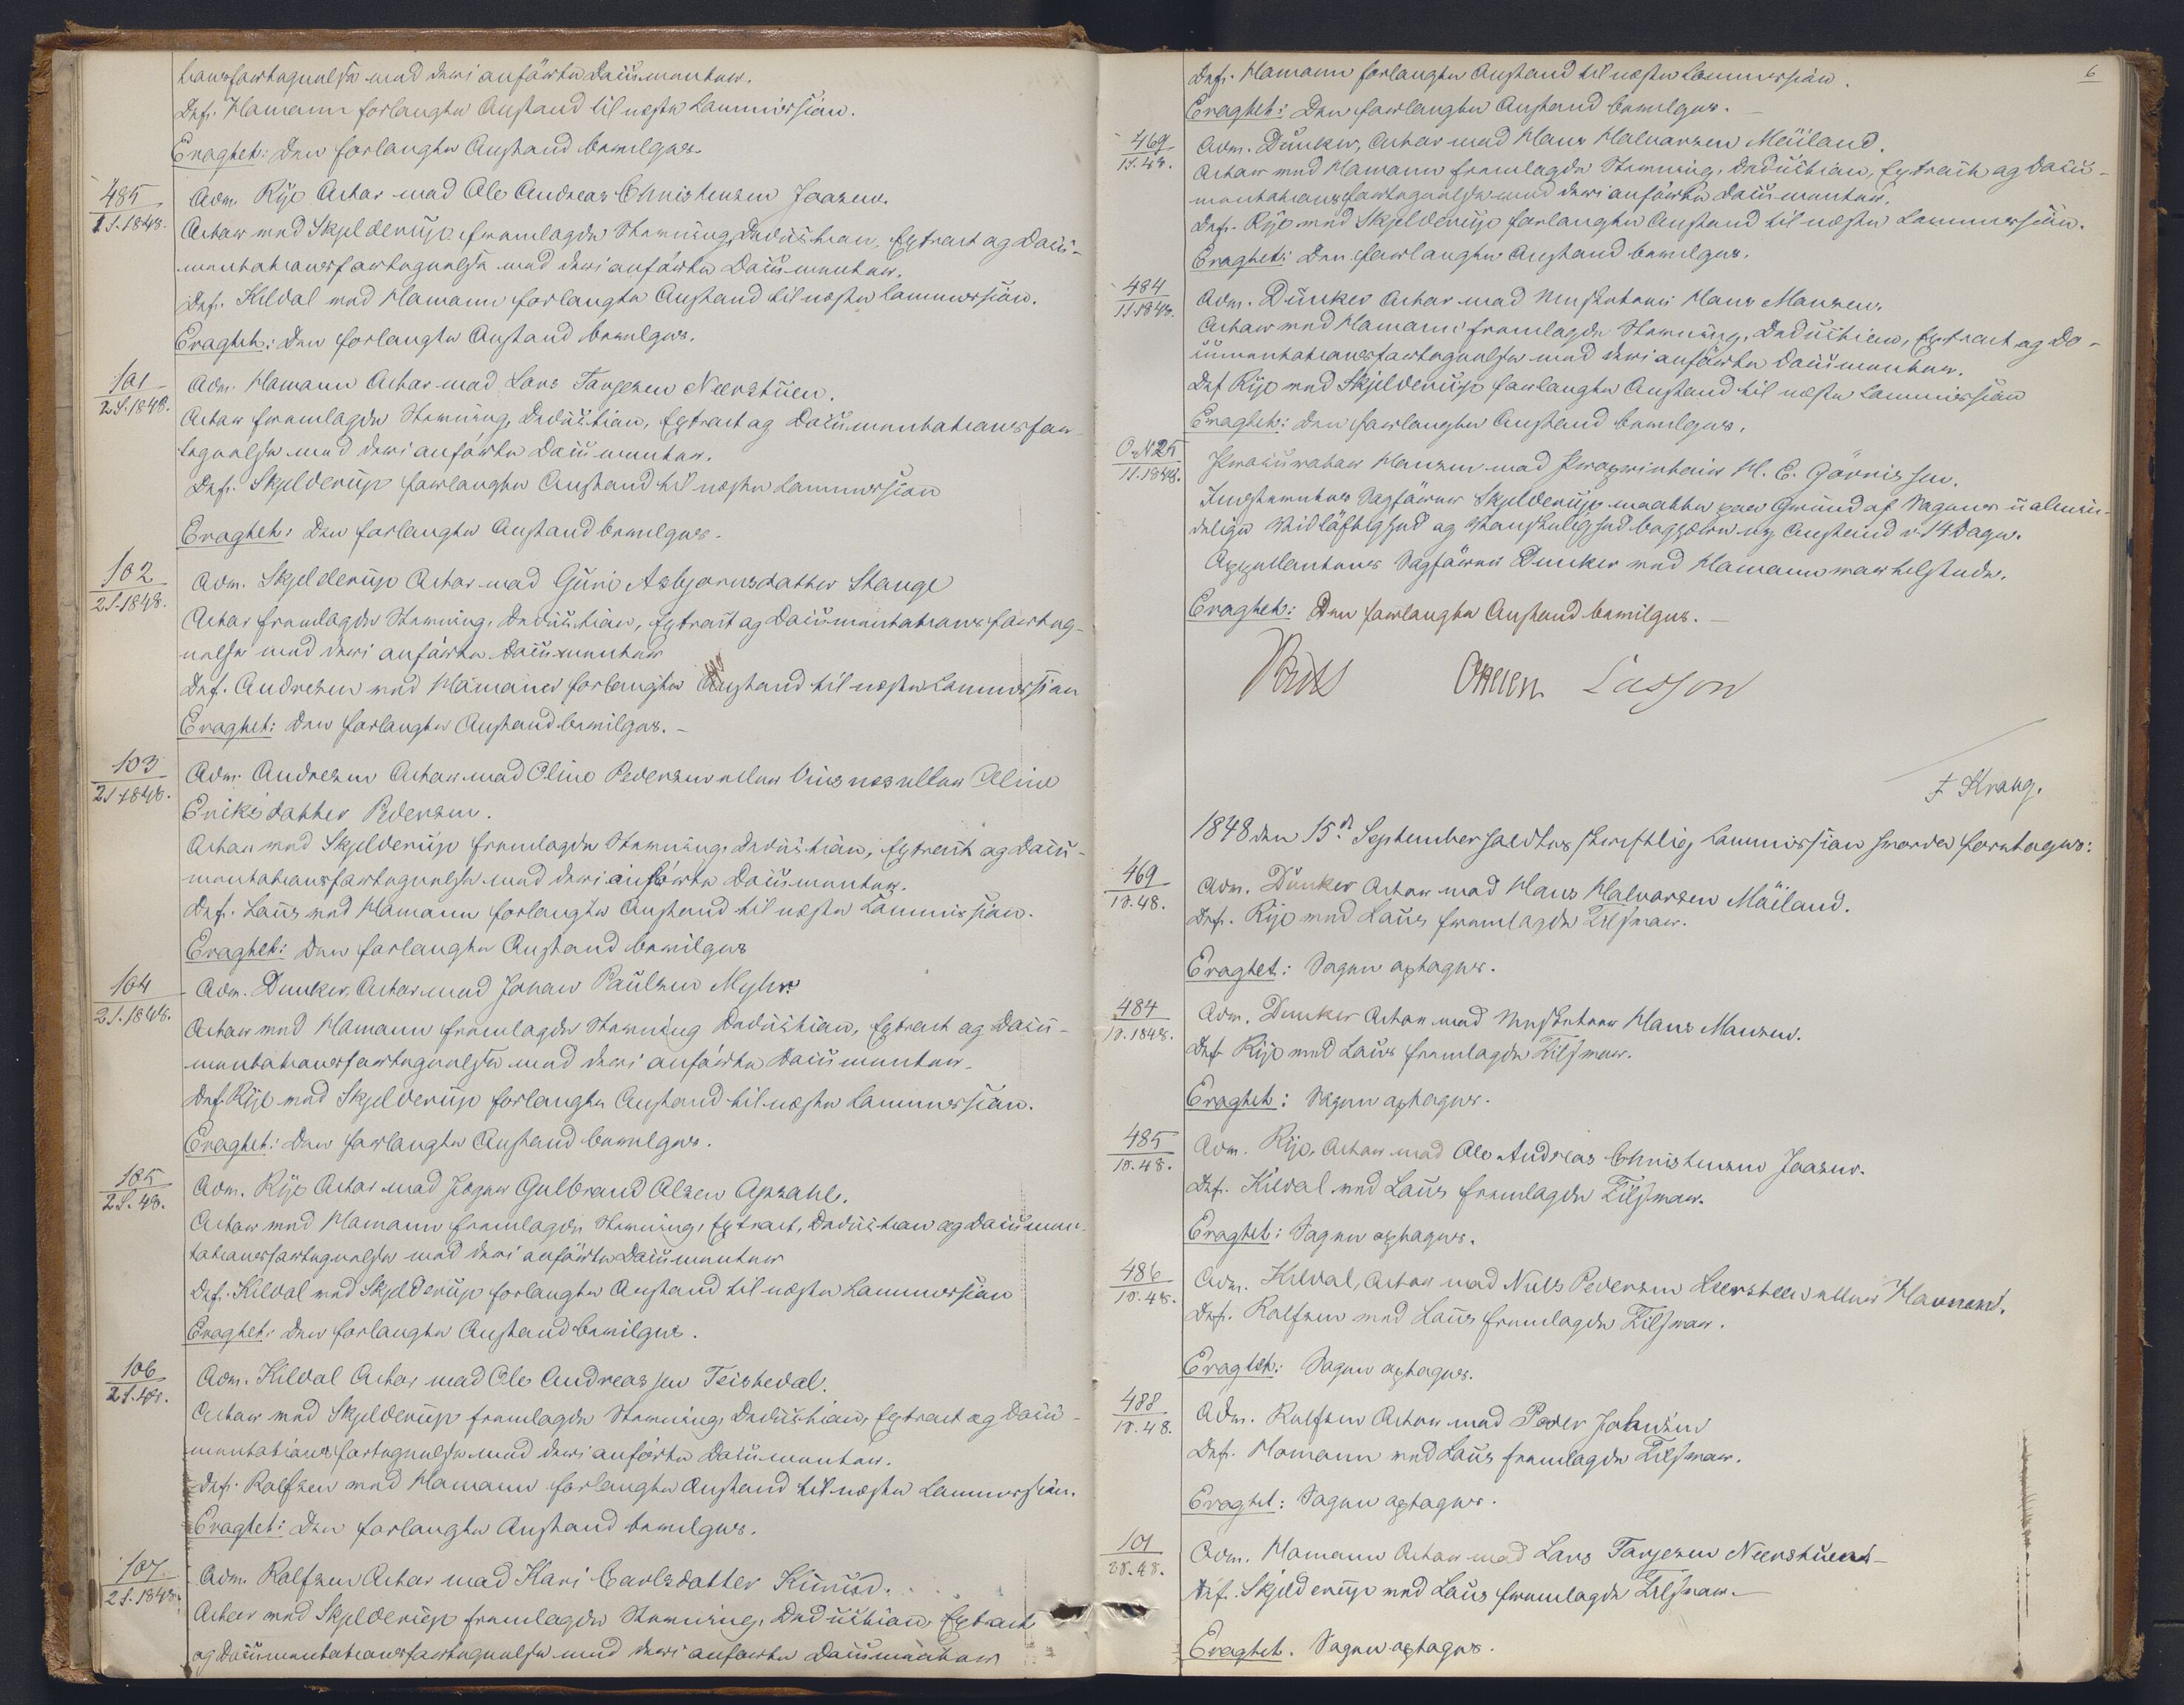 tionsfortegnelse med deri anførte Documenter.
Def. Hamann forlangte Anstand til næste Commission.
Eragtet: Den forlangte Anstand bevilges.
485
1 S. 1848.
Adv. Rye Actor mod Ole Andreas Christensen Joasen.
Actor ved Skjelderup fremlagde Stævning, Deduction, Extract og Docu-
mentationsfortegnelse med deri anførte Documenter.
Def. Kildal ved Hamann forlangte Anstand til næste Commission.
Eragtet: Den forlangte Anstand bevilges.
101
2 S. 1848.
Adv. Hamann Actor mod Lars Tarjesen Neerstuen.
Actor fremlagde Stævning, Deduction, Extract og Documentationsfor-
tegnelse med deri anførte Documenter.
Def. Skjelderup forlangte Anstand til næste Commission
Eragtet: Den forlangte Anstand bevilges.
102
2 S. 1848.
Adv. Skjelderup Actor mod Guri Asbjørnsdatter Stange
Actor fremlagde Stævning, Deduction, Extract og Documentationsforteg-
nelse med deri anførte Documenter
Def. Andresen ved Hamann forlangte Anstand til næste Commission
Eragtet: Den forlangte Anstand bevilges.-
103
2 S 1848.
Adv. Andresen Actor mod Oline Pedersen eller Viusnes eller Oline
Eriksdatter Pedersen.
Actor ved Skjelderup fremlagde Stævning, Deduction, Extract og Docu-
mentationsfortegnelse med deri anførte Documenter.
Def. Laus ved Hamann forlangte Anstand til næste Commission.
Eragtet: Den forlangte Anstand bevilges
104
2 S. 1848.
Adv. Dunker, Actor mod Johan Paulsen Myhre
Actor ved Hamann fremlagde Stævning Deduction, Extract og Docu-
mentationsfortegnelse med deri anførte Documenter.
Def. Rye ved Skjelderup forlangte Anstand til næste Commission.
Eragtet: Den forlangte Anstand bevilges.
105
2 S. 48.
Adv. Rye Actor mod Jøgner Gulbrand Olsen Opsahl.
Actor ved Hamann fremlagde Stævning, Extract, Deduction og Documen-
tationsfortegnelse med deri anførte Documenter
Def. Kildal ved Skjelderup forlangte Anstand til næste Commission
Eragtet: Den forlangte Anstand bevilges.
106
2 S. 48.
Adv. Kildal Actor mod Ole Andreassen Teistedal.
Actor ved Skjelderup fremlagde Stævning, Deduction, Extract og Docu-
mentationsfortegnelse med deri anførte Documenter.
Def. Rolfsen ved Hamann forlangte Anstand til næste Commission.
Eragtet: Den forlangte Anstand bevilges.
107.
2 S. 1848.
Adv. Rolfsen Actor mod Kari Carlsdatter Kirud.
Actor ved Skjelderup fremlagde Stævning, Deduction, Extract
og Documentationsfortegnelse med deri anførte Documenter
6
Def. Hamann forlangte Anstand til næste Commission.
Eragtet: Den forlangte Anstand bevilges.
469
1 S. 48.
Adv. Dunker, Actor mod Hans Halvorsen Meiland.
Actor ved Hamann fremlagde Stævning, Deduction, Extract og Docu-
mentationsfortegnelse med deri anførte Documenter.
Def. Rye ved Skjelderup forlangte Anstand til næste Commission.
Eragtet: Den forlangte Anstand bevilges.
484
1 S 1848.
Adv. Dunker Actor mod Musketeer Hans Hansen.
Actor ved Hamann fremlagde Stævning, Deduction, Extract og Do-
cumentationsfortegnelse med deri anførte Documenter.
Def Rye ved Skjelderup forlangte Anstand til næste Commission
Eragtet: Den forlangte Anstand bevilges.
O. N 25
1 S. 1848.
Procurator Hansen mod Proprietair H. E. Gørrissen.
Instevntes Sagfører Skjelderup maatte paa Grund af Sagens ualmin-
delige Vidløftighed og Vanskelighed begjære ny Anstand i 14 Dage.
Appellantens Sagfører Dunker ved Hamann var tilstede.
Eragtet: Den forlangte Anstand bevilges.-
Ottesen Lasson
F Krang.
1848 den 15de September holdtes skriftlig Commission hvorved foretoges:
469
1 S. 48.
Adv. Dunker Actor mod Hans Halvorsen Mäiland.
Def. Rye ved Laus fremlagde Tilsvar.
Eragtet: Sagen optages.
484
1 S. 1848.
Adv. Dunker Actor mod Musketeer Hans Hansen.
Def Rye ved Laus fremlagde Tilsvar.
Eragtet: Sagen optages.
485
1 S. 48.
Adv. Rye, Actor mod Ole Andreas Christensen Joasen.
Def. Kildal ved Laus fremlagde Tilsvar.
Eragtet: Sagen optages.
486
1 S. 48.
Adv. Kildal, Actor mod Niels Pedersen Leersteen eller Havnen.
Def. Rolfsen ved Laus fremlagde Tilsvar.
Eragtet: Sagen optages.
488
1 S. 48.
Adv. Rolfsen Actor mod Peder Johnsen
Def. Hamann ved Laus fremlagde Tilsvar.
Eragtet: Sagen optages.
101
2 S. 48.
Adv. Hamann Actor mod Lars Tarjesen Neerstuen-
Def. Skjelderup ved Laus fremlagde Tilsvar.-
Eragtet. Sagen optages.